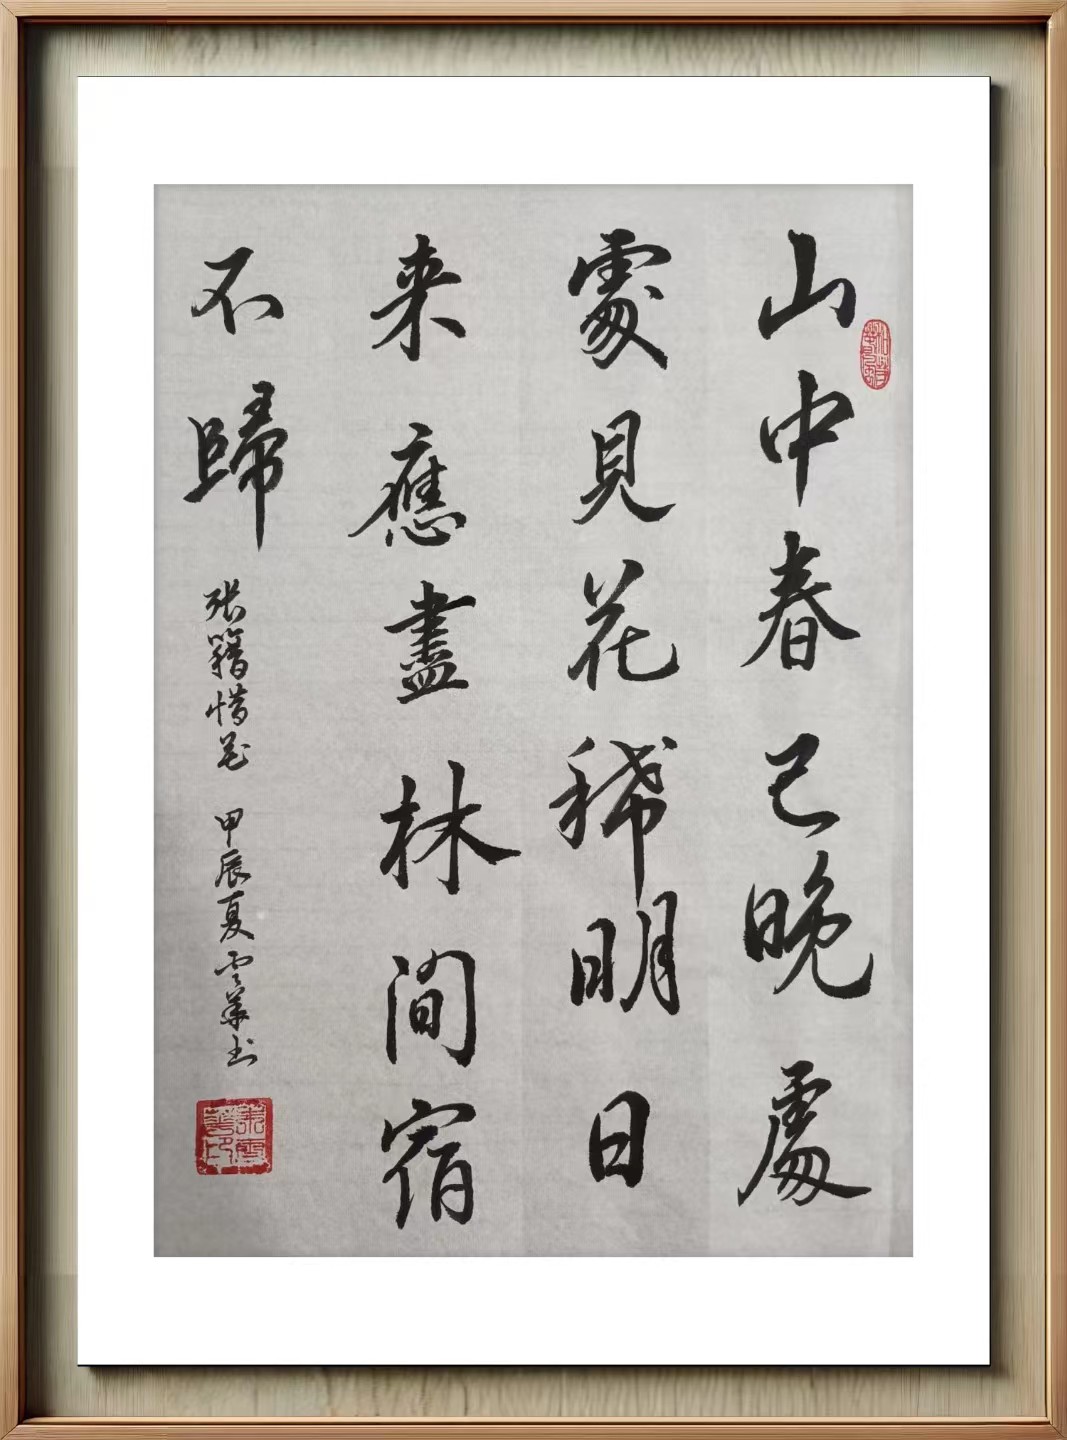 山中春已晚處
處見花稀明日
来應盡林間宿
不歸
張籍惜花 甲辰夏雲華书